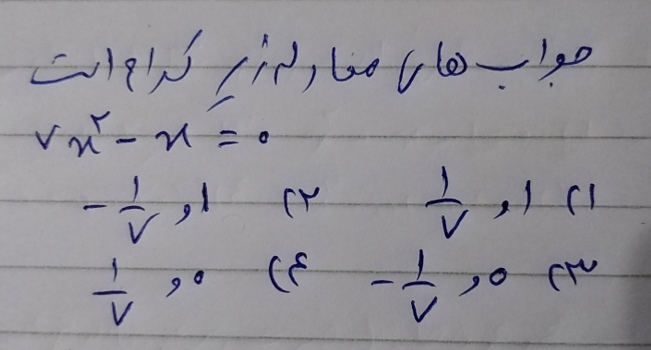 جواب های معادله زیر کدام است
۷x² - x = ۰
۱) ۱ و ۱/۷ ۲) ۱ و -۱/۷
۳) ۰ و -۱/۷ ۴) ۰ و ۱/۷